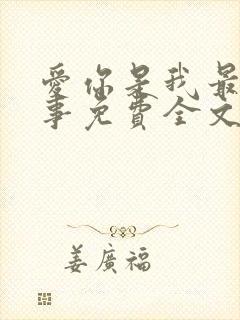 愛你是我最
事免費全文
姜廣福